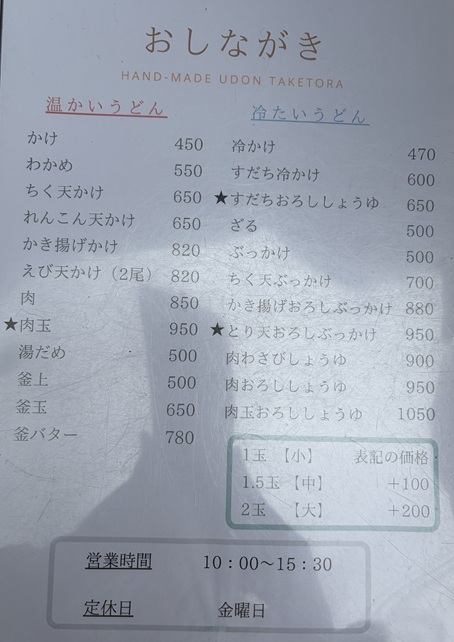 おしながき
HAND-MADE UDON TAKETORA
温かいうどん
かけ 450
わかめ 550
ちく天かけ 650
れんこん天かけ 650
かき揚げかけ 820
えび天かけ（2尾） 820
肉 850
★肉玉 950
湯だめ 500
釜上 500
釜玉 650
釜バター 780
冷たいうどん
冷かけ 470
すだち冷かけ 600
★すだちおろししょうゆ 650
ざる 500
ぶっかけ 500
ちく天ぶっかけ 700
かき揚げおろしぶっかけ 880
★とり天おろしぶっかけ 950
肉わさびしょうゆ 900
肉おろししょうゆ 950
肉玉おろししょうゆ 1050
1玉 【小】 表記の価格
1.5玉 【中】 +100
2玉 【大】 +200
営業時間 10：00～15：30
定休日 金曜日